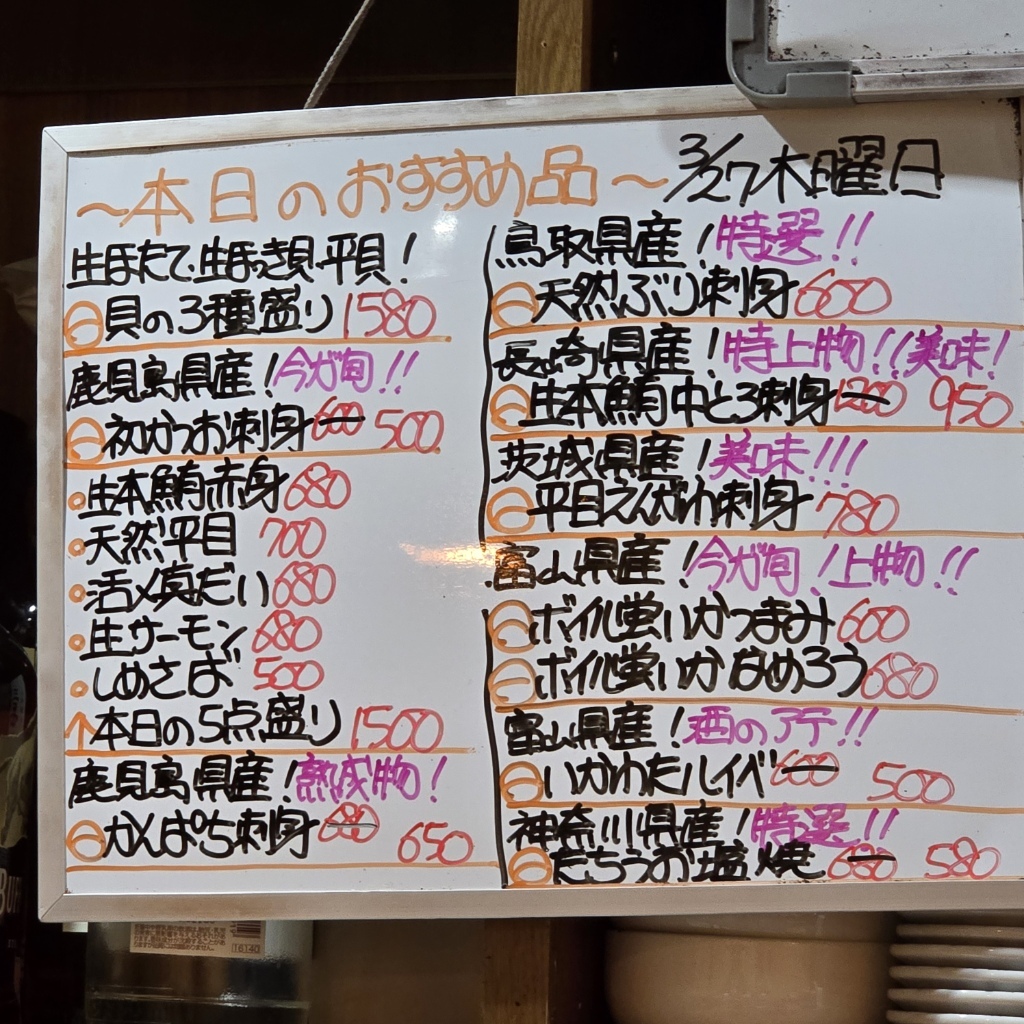 ～本日のおすすめ品～ 3/27木曜日
生ほたて、生ほっき貝・平貝！
貝の3種盛り 1580
鹿児島県産！今が旬！！
初かつお刺身 600 500
生本鮪赤身 680
天然平目 700
活〆真だい 680
生サーモン 680
しめさば 500
↑本日の5点盛り 1500
鹿児島県産！熟成物！
かんぱち刺身 680 650
鳥取県産！特選！！
天然ぶり刺身 600
長崎県産！特上物！！美味！
生本鮪中とろ刺身 1200 950
茨城県産！美味！！！
平目えんがわ刺身 780
富山県産！今が旬！上物！！
ボイル蛍いかつまみ 600
ボイル蛍いかなめろう 680
富山県産！酒のアテ！！
いかわたルイベ 600 500
神奈川県産！特選！！
たちうお塩焼 680 580
16140